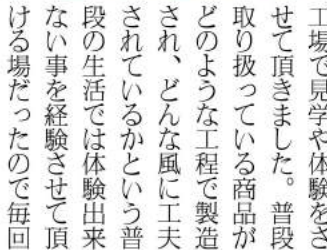 工場で見学や体験をさ
せて頂きました。普段
取り扱っている商品が
どのような工程で製造
され、どんな風に工夫
されているかという普
段の生活では体験出来
ない事を経験させて頂
ける場だったので毎回